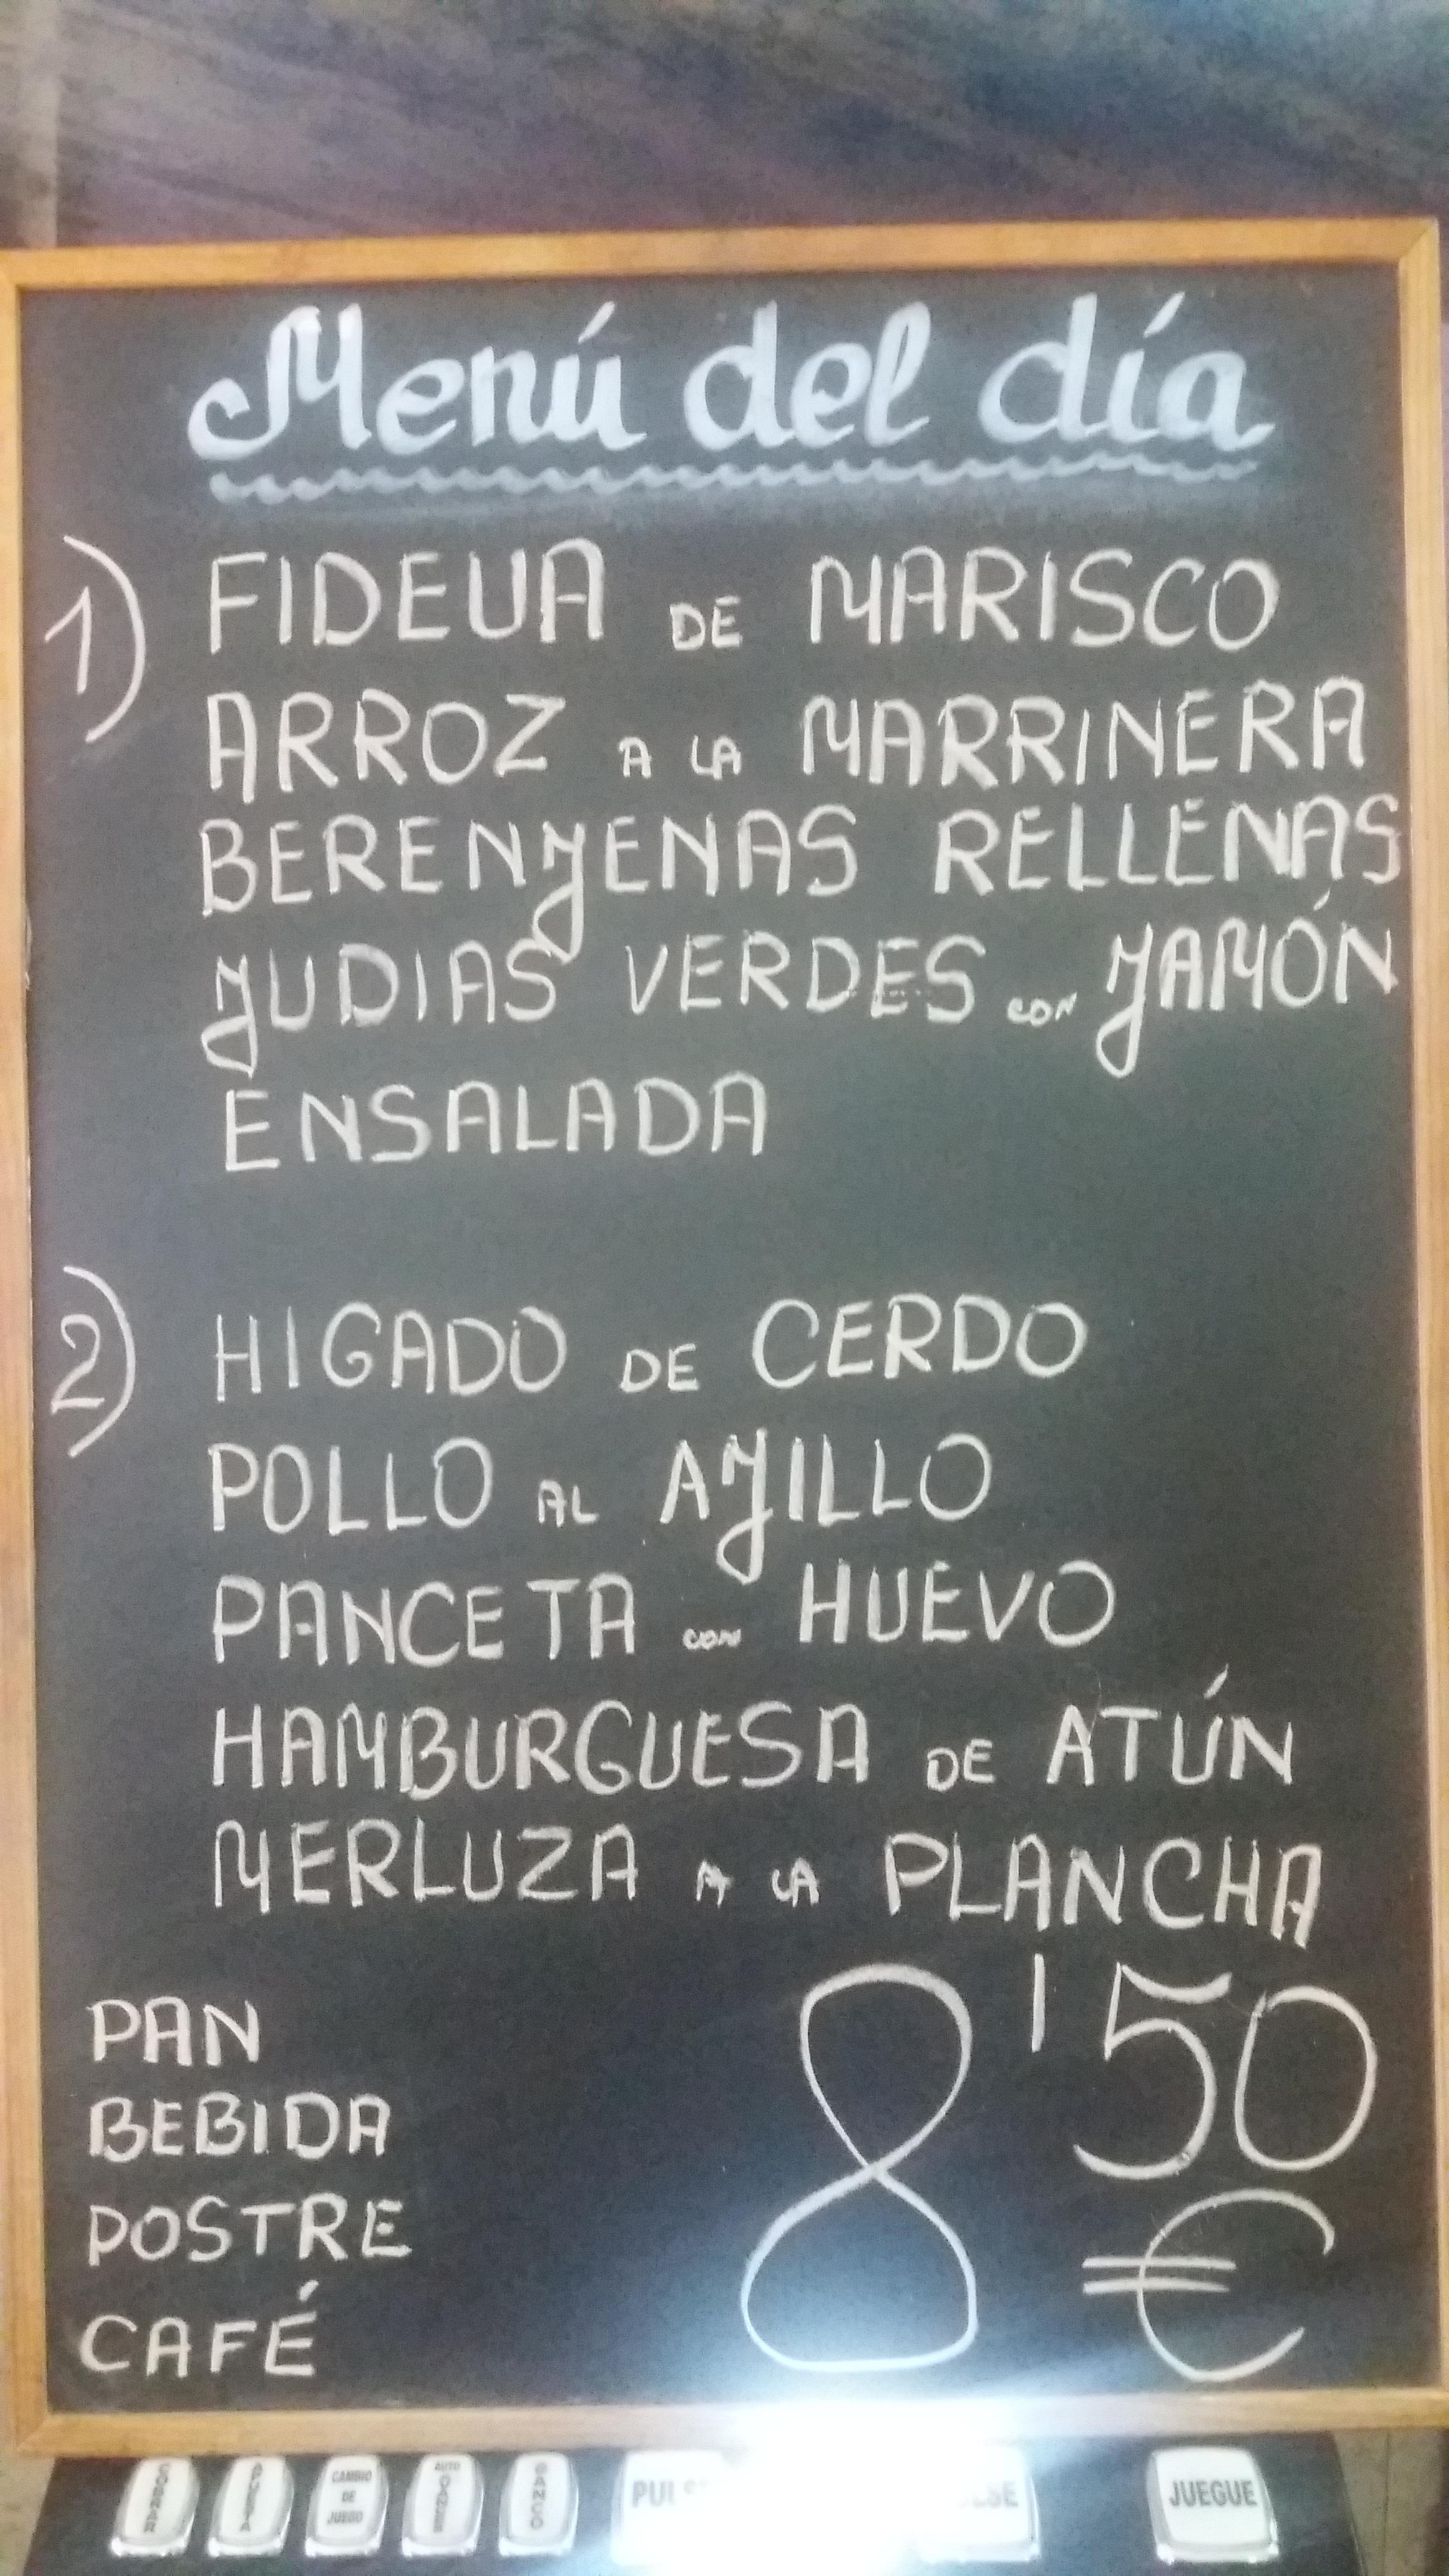 Menú del día
1) FIDEUA DE MARISCO
ARROZ A LA MARRINERA
BERENJENAS RELLENAS
JUDIAS VERDES CON JAMÓN
ENSALADA
2) HIGADO DE CERDO
POLLO AL AJILLO
PANCETA CON HUEVO
HAMBURGUESA DE ATÚN
MERLUZA A LA PLANCHA
PAN
BEBIDA
POSTRE
CAFÉ
8'50
€
COBRAR
APUESTA
CAMBIO
DE
JUEGO
AUTO
BANCO
JUEGUE